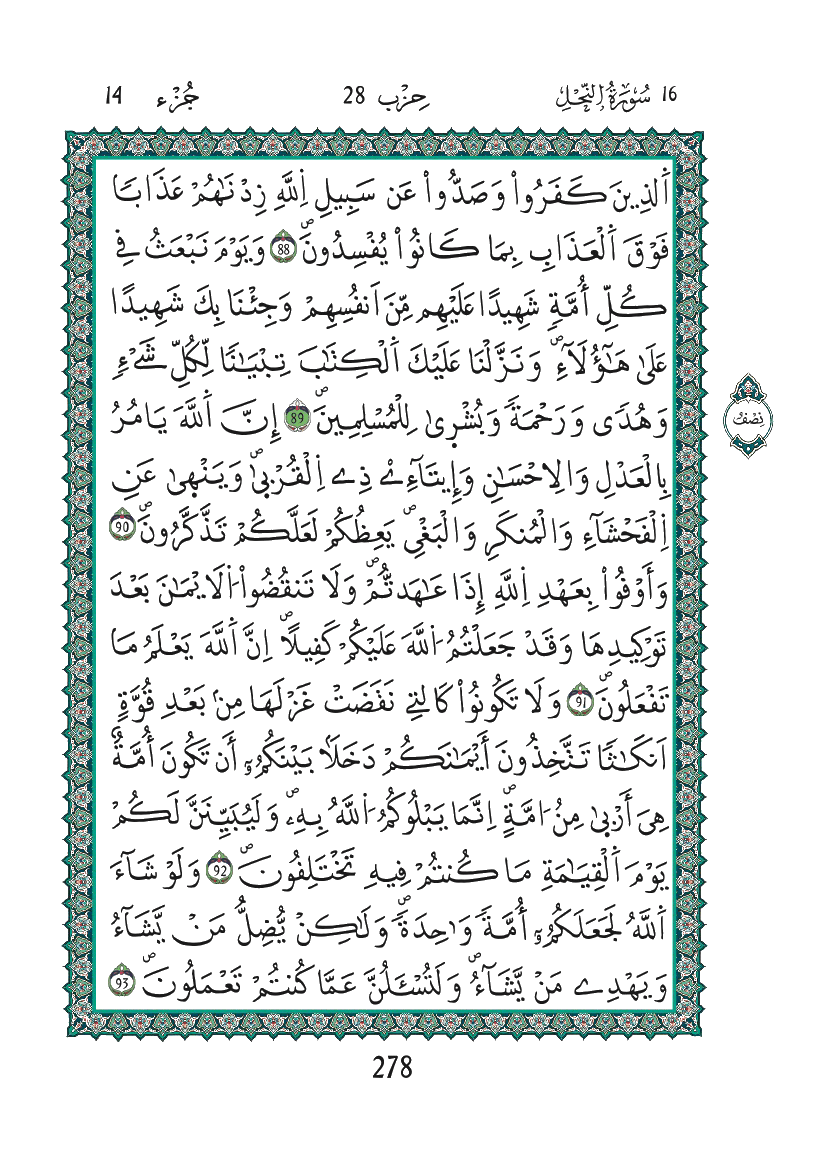 16 سُورَةُ اُلنَّحْلِ حِزْب 28 جُزْء 14
اَ۬لذِينَ كَفَرُواْ وَصَدُّواْ عَن سَبِيلِ اِ۬للَّهِ زِدْنَٰهُمْ عَذَاباٗ
فَوْقَ اَ۬لْعَذَابِ بِمَا كَانُواْ يُفْسِدُونَۖ 88 وَيَوْمَ نَبْعَثُ فِے
كُلِّ أُمَّةٖ شَهِيداً عَلَيْهِم مِّنَ اَنفُسِهِمْ وَجِئْنَا بِكَ شَهِيداً
عَلَىٰ هَٰٓؤُلَآءِۖ وَنَزَّلْنَا عَلَيْكَ اَ۬لْكِتَٰبَ تِبْيَٰناٗ لِّكُلِّ شَےْءٖ
وَهُدىٗ وَرَحْمَةٗ وَبُشْر۪ىٰ لِلْمُسْلِمِينَۖ 89 إِنَّ اَ۬للَّهَ يَامُرُ
بِالْعَدْلِ وَالِاحْسَٰنِ وَإِيتَآءِےْ ذِے اِ۬لْقُرْب۪ىٰۖ وَيَنْه۪ىٰ عَنِ
اِ۬لْفَحْشَآءِ وَالْمُنكَرِ وَالْبَغْيِۖ يَعِظُكُمْ لَعَلَّكُمْ تَذَّكَّرُونَۖ 90
وَأَوْفُواْ بِعَهْدِ اِ۬للَّهِ إِذَا عَٰهَدتُّمْۖ وَلَا تَنقُضُواْ اُ۬لَايْمَٰنَ بَعْدَ
تَوْكِيدِهَا وَقَدْ جَعَلْتُمُ اُ۬للَّهَ عَلَيْكُمْ كَفِيلاًۖ اِنَّ اَ۬للَّهَ يَعْلَمُ مَا
تَفْعَلُونَۖ 91 وَلَا تَكُونُواْ كَالتِے نَقَضَتْ غَزْلَهَا مِنۢ بَعْدِ قُوَّةٍ
اَنكَٰثاٗ تَتَّخِذُونَ أَيْمَٰنَكُمْ دَخَلاَۢ بَيْنَكُمُۥٓ أَن تَكُونَ أُمَّةٌ
هِيَ أَرْب۪ىٰ مِنُ امَّةٍۖ اِنَّمَا يَبْلُوكُمُ اُ۬للَّهُ بِهِۦۖ وَلَيُبَيِّنَنَّ لَكُمْ
يَوْمَ اَ۬لْقِيَٰمَةِ مَا كُنتُمْ فِيهِ تَخْتَلِفُونَۖ 92 وَلَوْ شَآءَ
اَ۬للَّهُ لَجَعَلَكُمُۥٓ أُمَّةٗ وَٰحِدَةٗۖ وَلَٰكِنْ يُّضِلُّ مَنْ يَّشَآءُ
وَيَهْدِے مَنْ يَّشَآءُۖ وَلَتُسْـَٔلُنَّ عَمَّا كُنتُمْ تَعْمَلُونَۖ 93
نِصْفُ
278